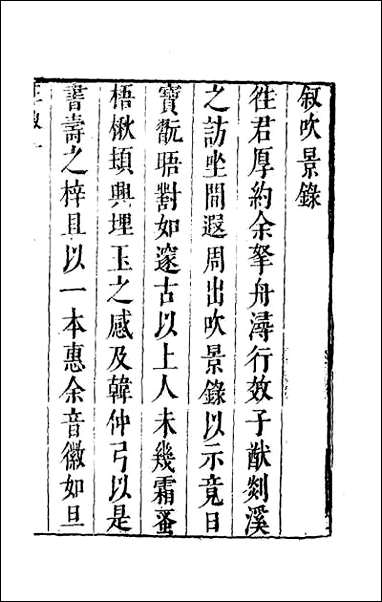 叙吹景錄
徃君厚約余拏舟潯行效子猷剡溪
之訪坐間遐周出吹景錄以示竟日
寶翫晤對如邃古以上人未幾霜蚤
梧楸頓興埋玉之感及韓仲弓以是
書壽之梓且以一本惠余音徽如旦